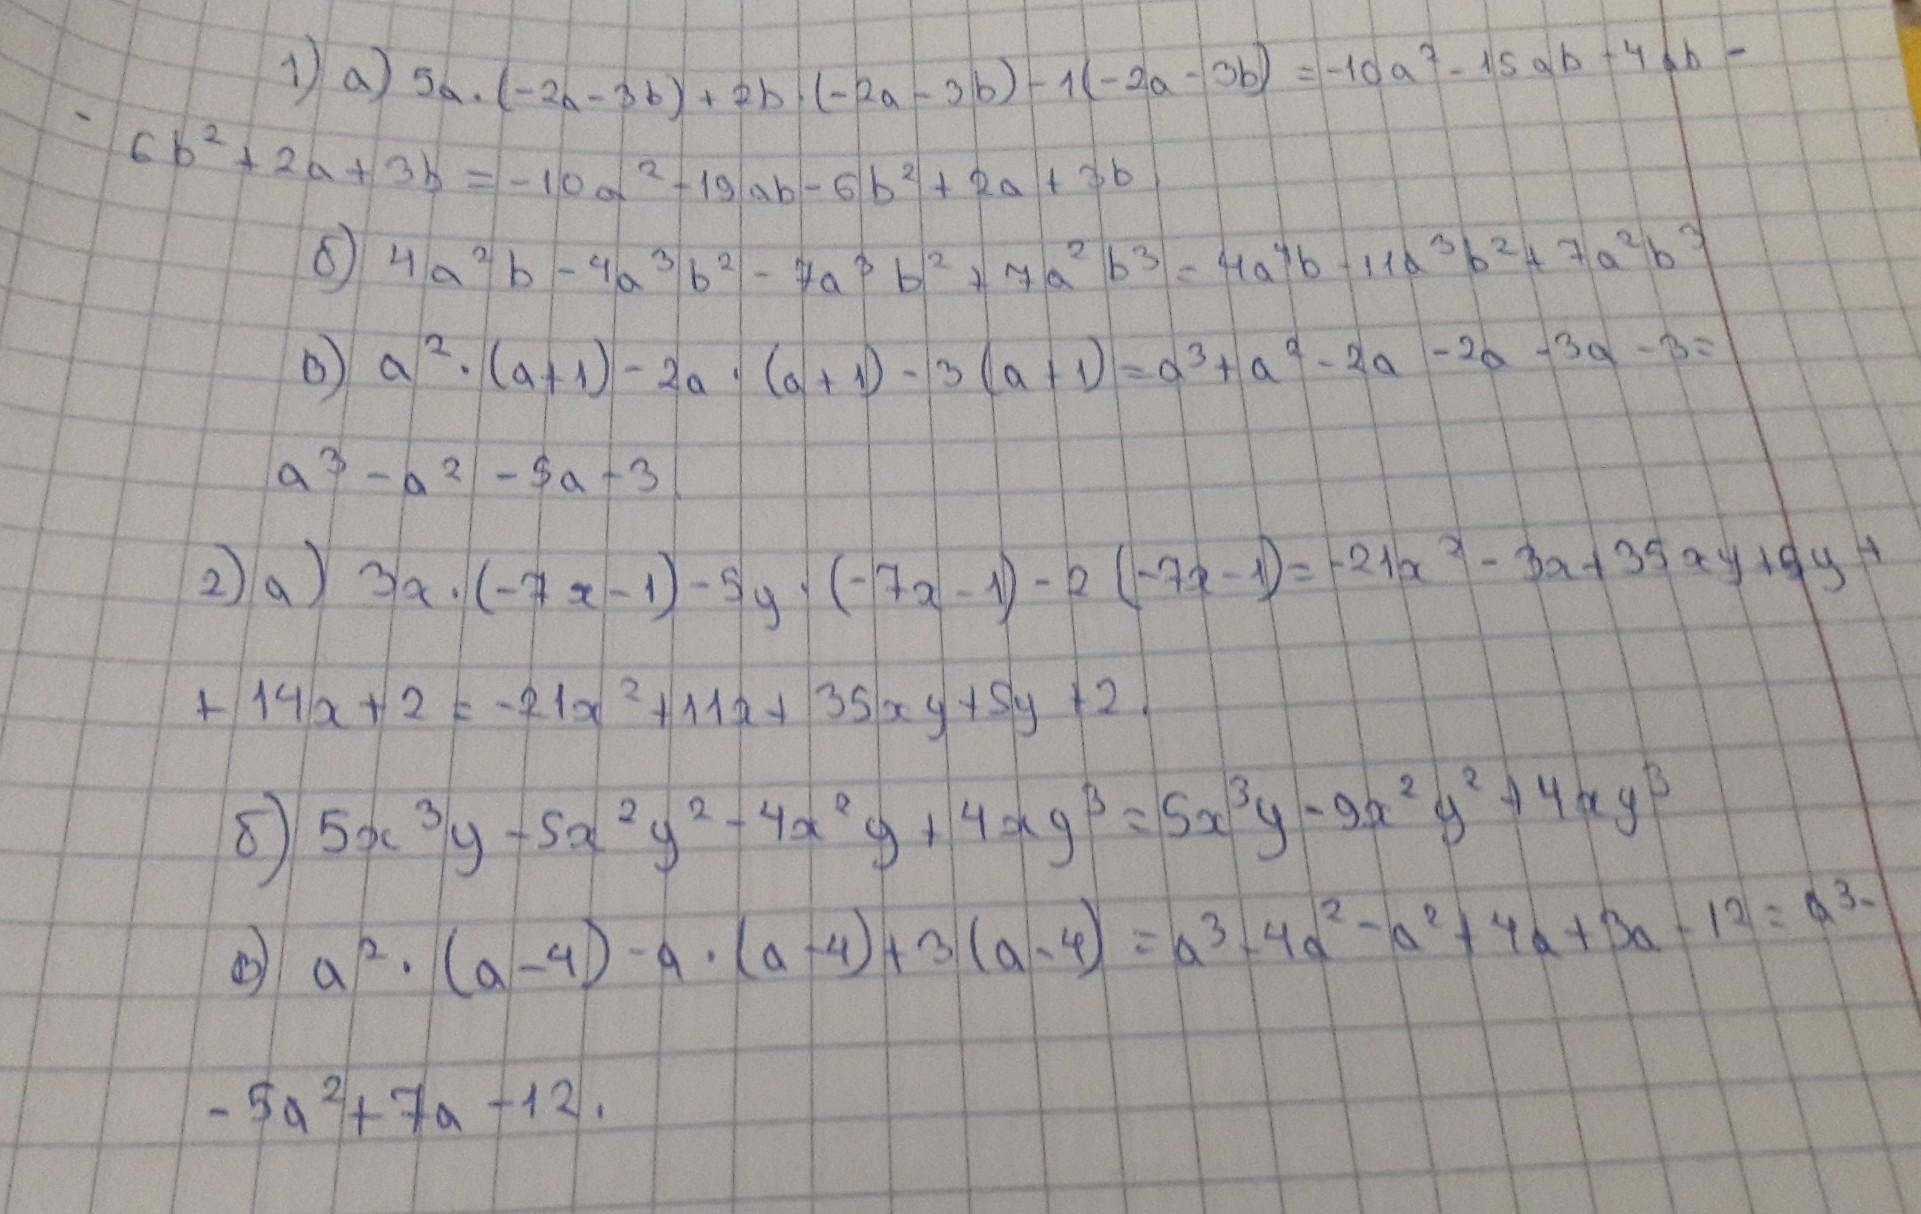 1) а) 5a·(-2a-3b)+2b·(-2a-3b)-1(-2a-3b)=-10a²-15ab-4ab-
-6b²+2a+3b=-10a²-19ab-6b²+2a+3b
б) 4a²b-4a³b²-7a³b²+7a²b³=4a²b-11a³b²+7a²b³
в) a²·(a+1)-2a·(a+1)-3(a+1)=a³+a²-2a-2a-3a-3=
a³-a²-5a-3
2) а) 3x·(-7x-1)-5y·(-7x-1)-2(-7x-1)=-21x²-3x+35xy+5y+
+14x+2=-21x²+11x+35xy+5y+2.
б) 5x³y-5x²y²-4x²y+4xy³=5x³y-9x²y²+4xy³
в) a²·(a-4)-a·(a-4)+3(a-4)=a³-4a²-a²+4a+3a-12=a³-
-5a²+7a-12.